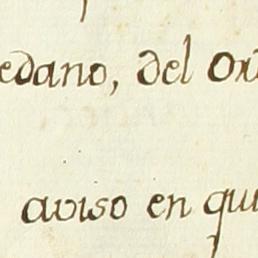 edano, del Or
aviso en qui